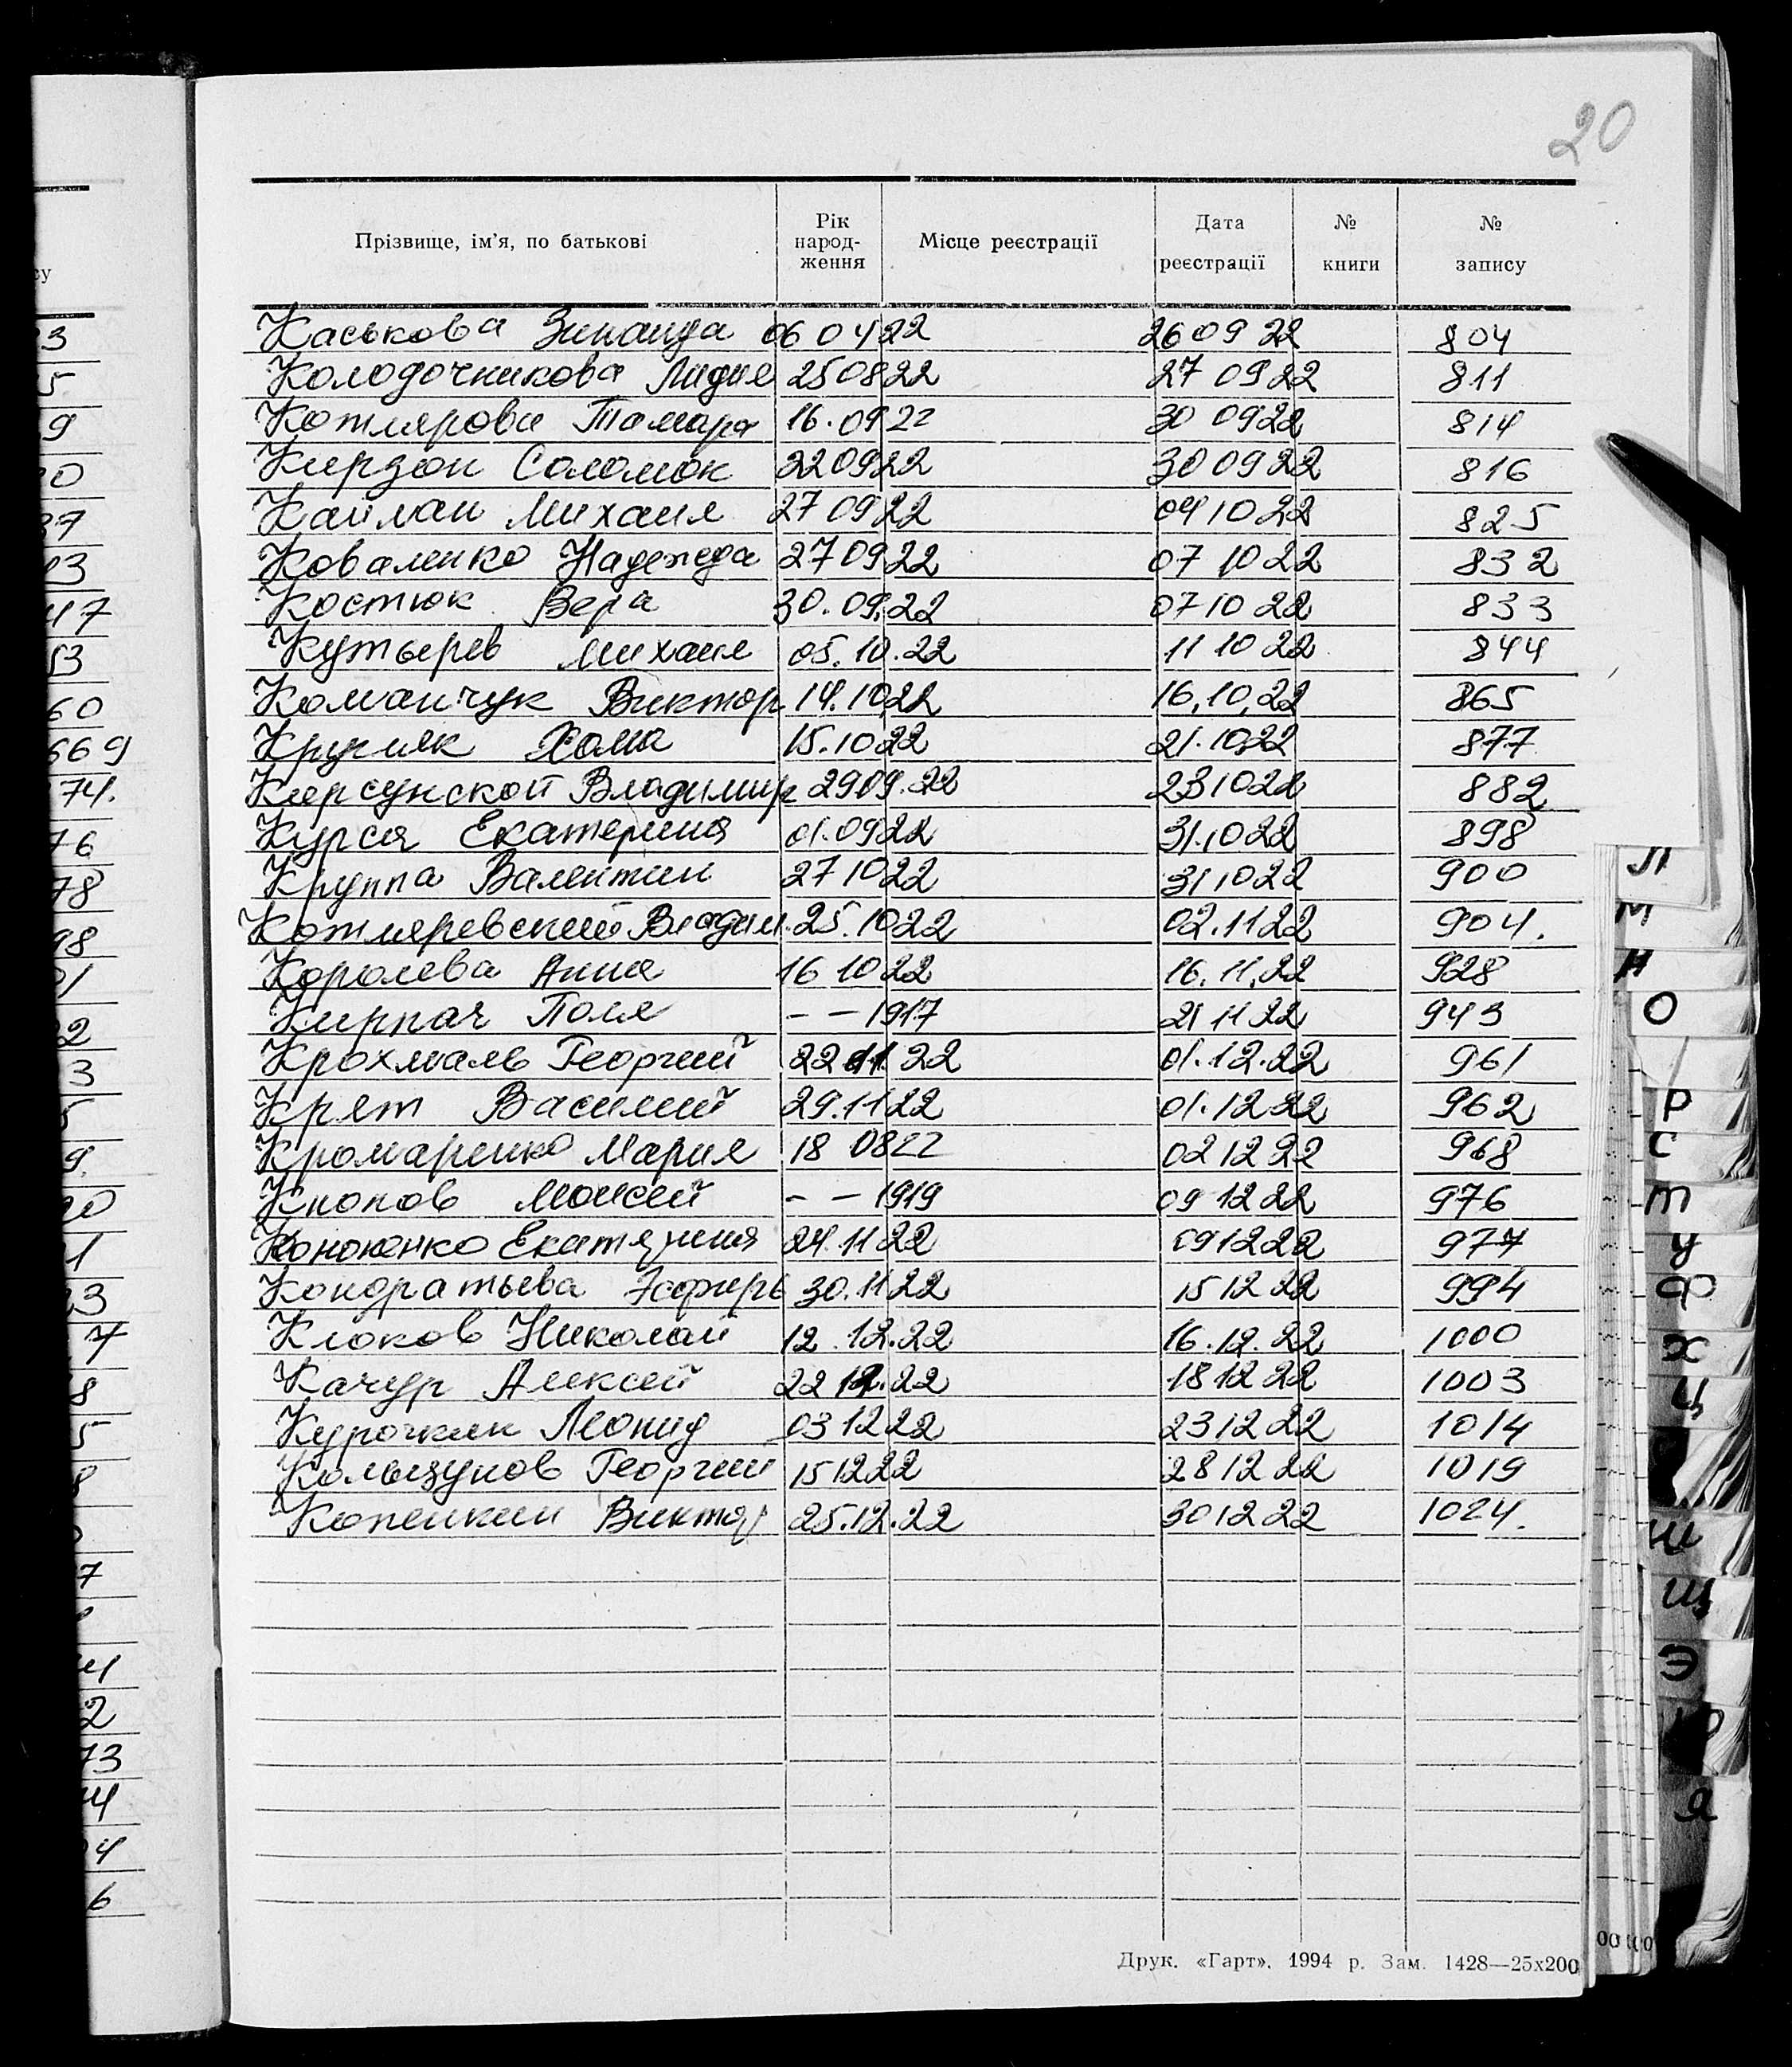 20
Прізвище, ім'я, по батькові Рік народ- ження Місце реєстрації Дата реєстрації № книги № запису
Каськова Зинаида 06 04 22 26 09 22 804
Колодочникова Лидия 25 08 22 27 09 22 811
Котлярова Тамара 16.09 22 30 09 22 814
Кирзон Соломон 22 09 22 30 09 22 816
Кайман Михаил 27 09 22 04 10 22 825
Коваленко Надежда 27 09 22 07 10 22 832
Костюк Вера 30.09.22 07 10 22 833
Кутырев Михаил 05.10.22 11 10 22 844
Команчук Виктор 14.10.22 16.10.22 865
Хома 15.10 22 21.10.22 877
Корсунской Владимир 29 09.22 23 10 22 882
Курся Екатерина 01.09 22 31.10 22 898
Круппа Валентин 27 10 22 31 10 22 900
Котляревский Владим. 25.10 22 02.11 22 904.
Королева Анна 16 10 22 16.11.22 928
Кирпач Поля – – 1917 21 11 22 943
Крохмаль Георгий 22 11 22 01.12.22 961
Крят Василий 29.11 22 01.12 22 962
Кромаренко Мария 18 08 22 02 12 22 968
Кнопов Моисей – – 1919 09 12 22 976
Кононенко Екатерина 24.11 22 09 12 22 977
Кондратьева Эсфирь 30.11 22 15 12 22 994
Клоков Николай 12.12.22 16.12.22 1000
Качур Алексей 22 12.22 18 12 22 1003
Курочкин Леонид 03 12 22 23 12 22 1014
Колызунов Георгий 15 12 22 28 12 22 1019
Копейкин Виктор 25.12.22 30 12 22 1024.
Друк. «Гарт». 1994 р. Зам. 1428—25х200
Л
М
Н
О
Р
С
Т
У
Ф
Х
Ц
Ш
Щ
Э
Ю
Я